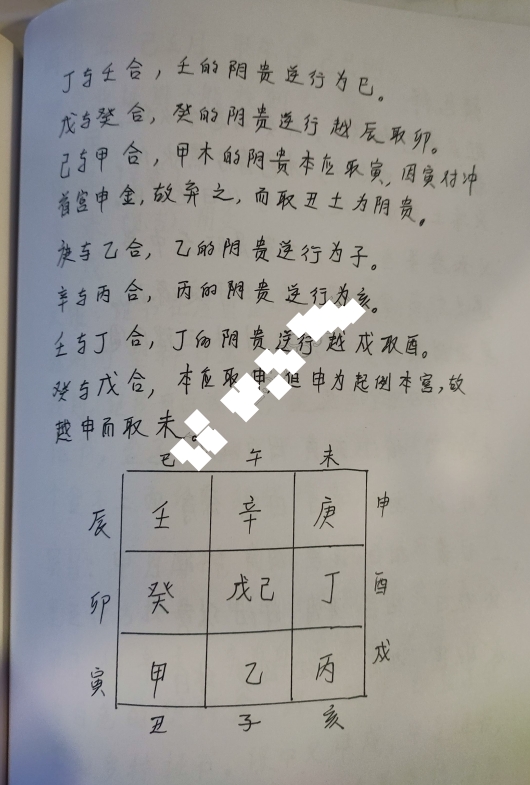 丁与壬合，壬的阴贵逆行为巳。
戊与癸合，癸的阴贵逆行越辰取卯。
己与甲合，甲木的阴贵本应取寅，因寅付冲
着宫申金，故弃之，而取丑土为阴贵。
庚与乙合，乙的阴贵逆行为子。
辛与丙合，丙的阴贵逆行为亥。
壬与丁合，丁的阴贵逆行越戌取酉。
癸与戊合，本应取申，但申为起例本宫，故
越申而取未。
巳 午 未
辰 壬 辛 庚 申
卯 癸 戊己 丁 酉
寅 甲 乙 丙 戌
丑 子 亥